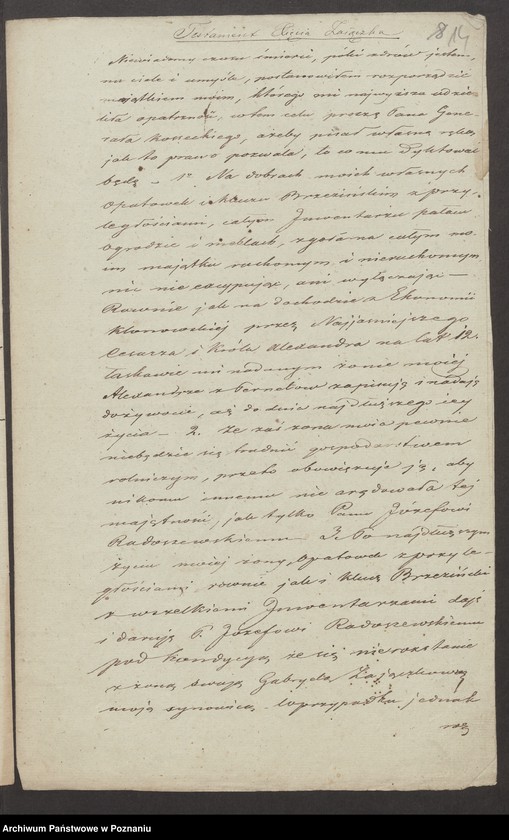 Testament Xięcia Zaiączka
Niewiadomy czas śmierci, póki zdrów jestem,
na ciele i umyśle, postanowiłem rozporządzić
majątkiem moim, którego mi najwyższa udzie-
liła opatrzność, w tem celu, proszę Pana Gene-
rała Kosseckiego, ażeby pisał własną ręką,
jak to prawo pozwala, to co mu dyktować
będę. 1° Na dobrach moich własnych
Opatowek i kluczu Brzezińskim z przy-
ległościami, całym Inwentarzu pałacu
ogrodzie i meblach, zgoła na całym mo-
im majątku ruchomym i nieruchomym
nic nie excypując, ani wyłączając —
Równie jak na dochodzie z Ekonomii
Klonowskiej przez Najjaśniejszego
Cesarza i Króla Alexandra na lat 12.
łaskawie mi nadanym żonie mojej
Alexandrze z Pernetów zapisuję i nadaję
dożywocie, aż do dnia najdłuższego jej
życia — 2. Że zaś żona moia pewnie
niebędzie się trudnić gospodarstwem
rolniczym, przeto obowiązuję ją, aby
nikomu innemu nie arędowała tej
majętności, jak tylko Panu Józefowi
Radoszewskiemu 3. Po najdłuższym
życiu mojej żony, Opatowek z przyle-
głościami, równie jak i klucz Brzeziński
z wszelkiemi Inwentarzami daję
i daruję P. Józefowi Radoszewskiemu
pod kondycyą, że się nierozstanie
z żoną swoją Gabryelą Zajączkową
moją synowicą, w przypadku jednak
8 14
Archiwum Państwowe w Poznaniu